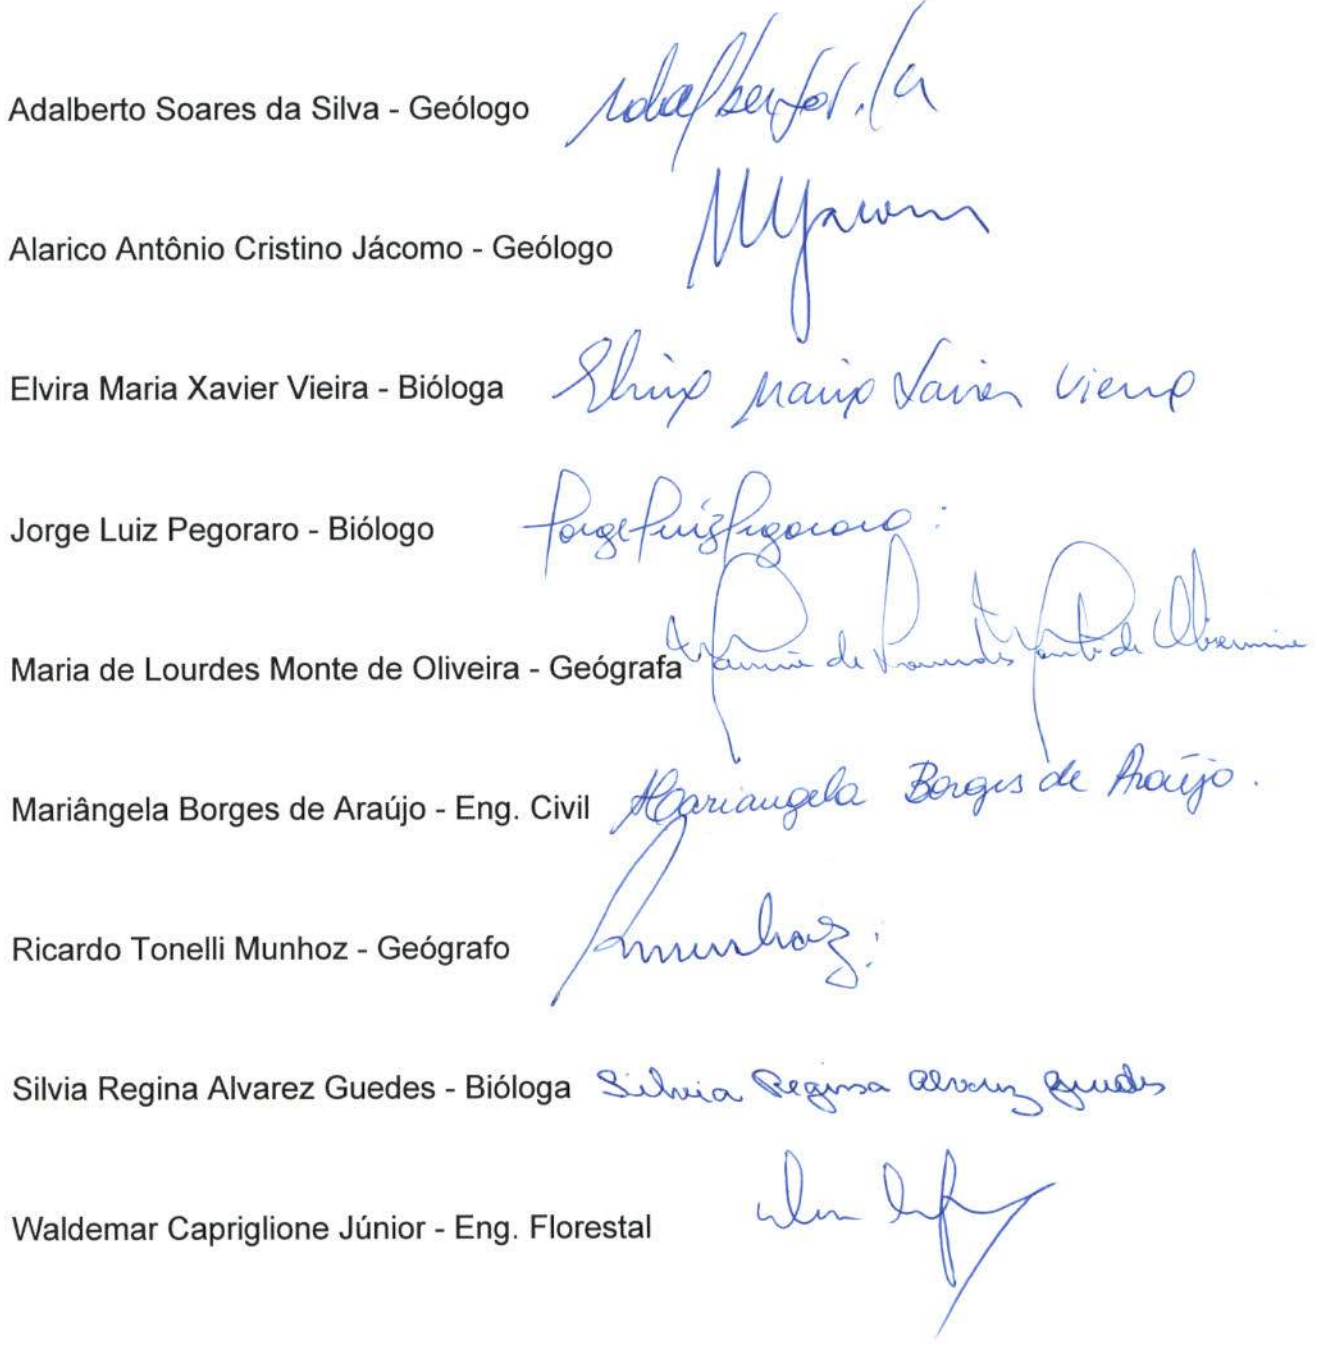 Adalberto Soares da Silva - Geólogo
Alarico Antônio Cristino Jácomo - Geólogo
Elvira Maria Xavier Vieira - Bióloga Elvira Maria Xavier Vieira
Jorge Luiz Pegoraro - Biólogo Jorge Luiz Pegoraro
Maria de Lourdes Monte de Oliveira - Geógrafa Maria de Lourdes Monte de Oliveira
Mariângela Borges de Araújo - Eng. Civil Mariangela Borges de Araújo.
Ricardo Tonelli Munhoz - Geógrafo Rmunhoz
Silvia Regina Alvarez Guedes - Bióloga Silvia Regina Alvarez Guedes
Waldemar Capriglione Júnior - Eng. Florestal